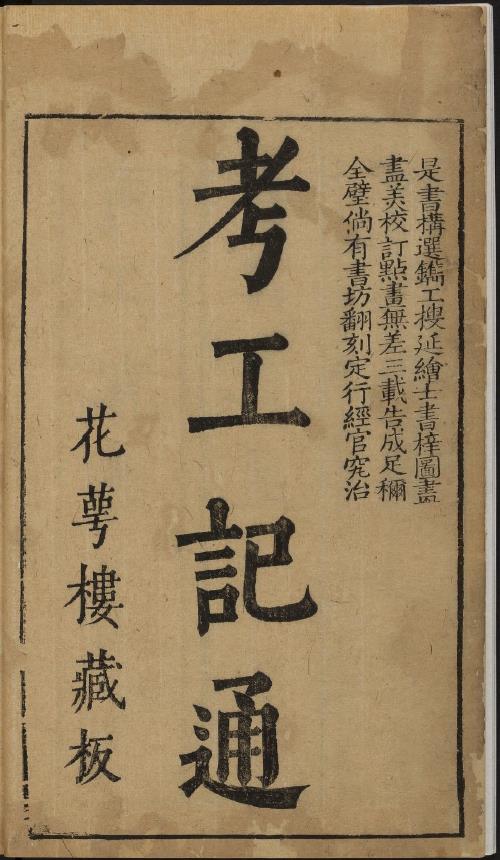 是書構選鐫工搜延繪士書梓圖畫
盡美校訂點畫無差三載告成足稱
全璧倘有書坊翻刻定行經官究治
考工記通
花萼樓藏板